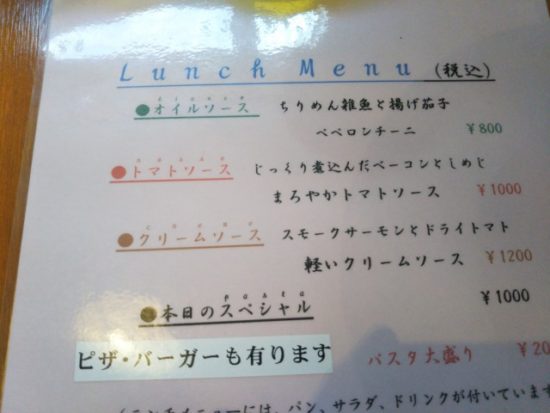 Lunch Menu (税込)
●オイルソース ちりめん雑魚と揚げ茄子
ペペロンチーニ ￥800
●トマトソース じっくり煮込んだベーコンとしめじ
まろやかトマトソース ￥1000
●クリームソース スモークサーモンとドライトマト
軽いクリームソース ￥1200
pasta
●本日のスペシャル ￥1000
ピザ・バーガーも有ります
パスタ大盛り ￥20
ランチメニューには、パン、サラダ、ドリンクが付いています